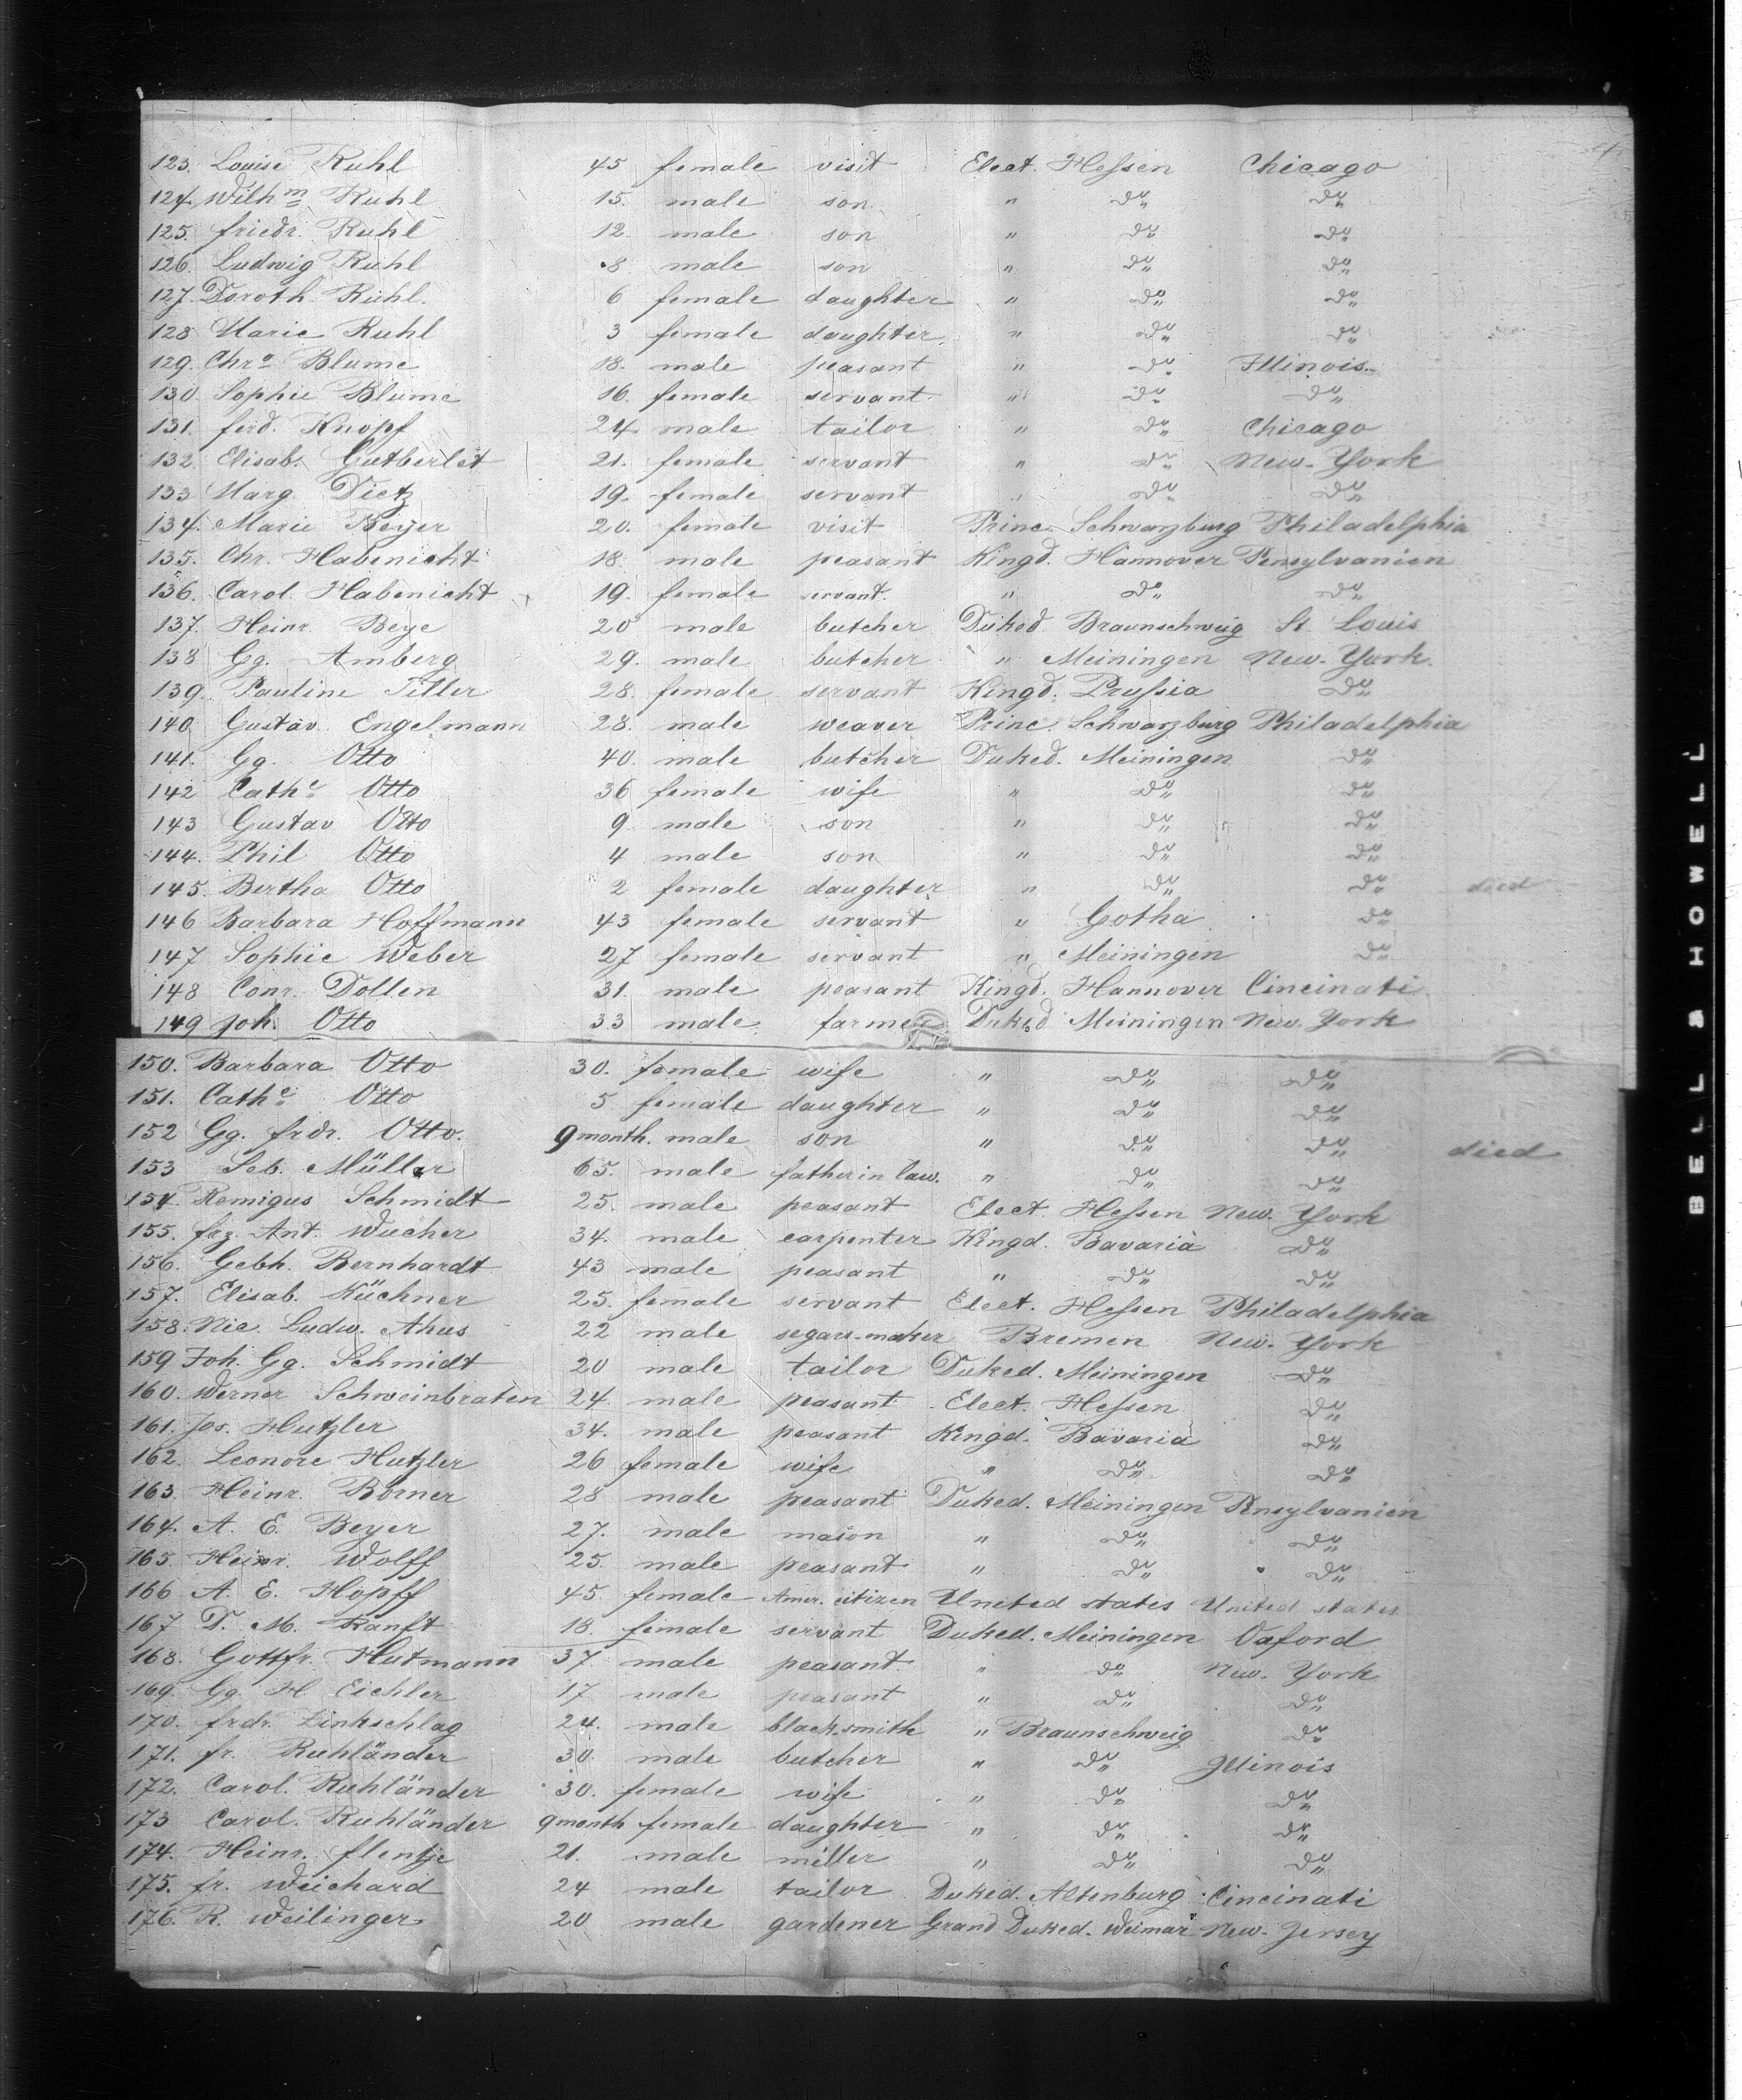 123. Louise Ruhl 45 female visit Elect. Hessen Chicago
124. Wilhm Ruhl 15. male son " do do
125. friedr. Ruhl 12. male son " do do
126. Ludwig Ruhl 8 male son " do do
127. Doroth. Ruhl. 6 female daughter " do do
128 Marie Ruhl 3 female daughter. " do do
129. Chro Blume 18. male peasant " do Illinois.
130. Sophie Blume 16. female servant. " do do
131. ferd. Knopf 24. male tailor " do Chicago
132. Elisab. Gutberlet 21. female servant " do New-York
133 Marg. Dietz 19. female servant " do do
134. Marie Beyer 20. female visit Princ. Schwarzburg Philadelphia
135. Chr. Habenicht 18. male peasant Kingd. Hannover Pensylvanien
136. Carol. Habenicht 19. female servant. " do do
137. Heinr. Beye 20 male butcher Duked. Braunschweig St. Louis
138 Gg. Amberg 29. male butcher " Meiningen New-York.
139. Pauline Titler 28. female servant Kingd. Prussia do
140 Gustav Engelmann 28. male weaver Princ. Schwarzburg Philadelphia
141. Gg. Otto 40. male butcher Duked. Meiningen do
142 Cathe Otto 36 female wife " do do
143 Gustav Otto 9 male son " do do
144. Phil Otto 4 male son " do do
145. Bertha Otto 2 female daughter " do do died
146 Barbara Hoffmann 43 female servant " Gotha do
147 Sophie Weber 27 female servant " Meiningen do
148 Conr. Dollen 31. male peasant Kingd. Hannover Cincinati
149 Joh. Otto 33 male farmer Duked Meiningen New. York
150. Barbara Otto 30. female wife " do do
151. Cathe Otto 5 female daughter " do do
152 Gg. frdr. Otto. 9 month. male son " do do died
153 Seb. Müller 65. male father in law. " do do
154. Remigus Schmidt 25. male peasant Elect. Hessen New. York
155. frz. Ant. Wucher 34. male carpenter Kingd. Bavaria do
156. Gebh. Bernhardt 43 male peasant " do do
157. Elisab. Küchner 25. female servant Elect. Hessen Philadelphia
158. Nic. Ludw. Ahus 22 male segars-maker Bremen New-York
159 Joh. Gg. Schmidt 20 male tailor Duked. Meiningen do
160. Werner Schweinbraten 24 male peasant Elect. Hessen do
161. Jos. Hutzler 34. male peasant Kingd. Bavaria do
162. Leonore Hutzler 26 female wife " do do
163. Heinr. Börner 28 male peasant Duked. Meiningen Pnsylvanien
164. A. E. Beyer 27. male mason " do do
165. Heinr. Wolff 25. male peasant " do do
166 A. E. Hopff 45. female Amer. citizen United states United states
167 D. M. Ranft 18. female servant Duked. Meiningen Oxford
168. Gottfr. Hutmann 37 male peasant. " do New-York
169. Gg. H Eichler 17. male peasant " do do
170. frdr. Zinkschlag 24. male blacksmith " Braunschweig do
171. fr. Ruhländer 30. male butcher " do Illinois
172. Carol. Ruhländer 30. female wife " do do
173 Carol. Ruhländer 9 month female daughter " do do
174. Heinr. flentje 21. male miller " do do
175. fr. Weichard 24 male tailor Duked. Altenburg Cincinati
176. R. Weilinger 20 male gardener Grand Duked. Weimar New-Jersey
BELL & HOWELL